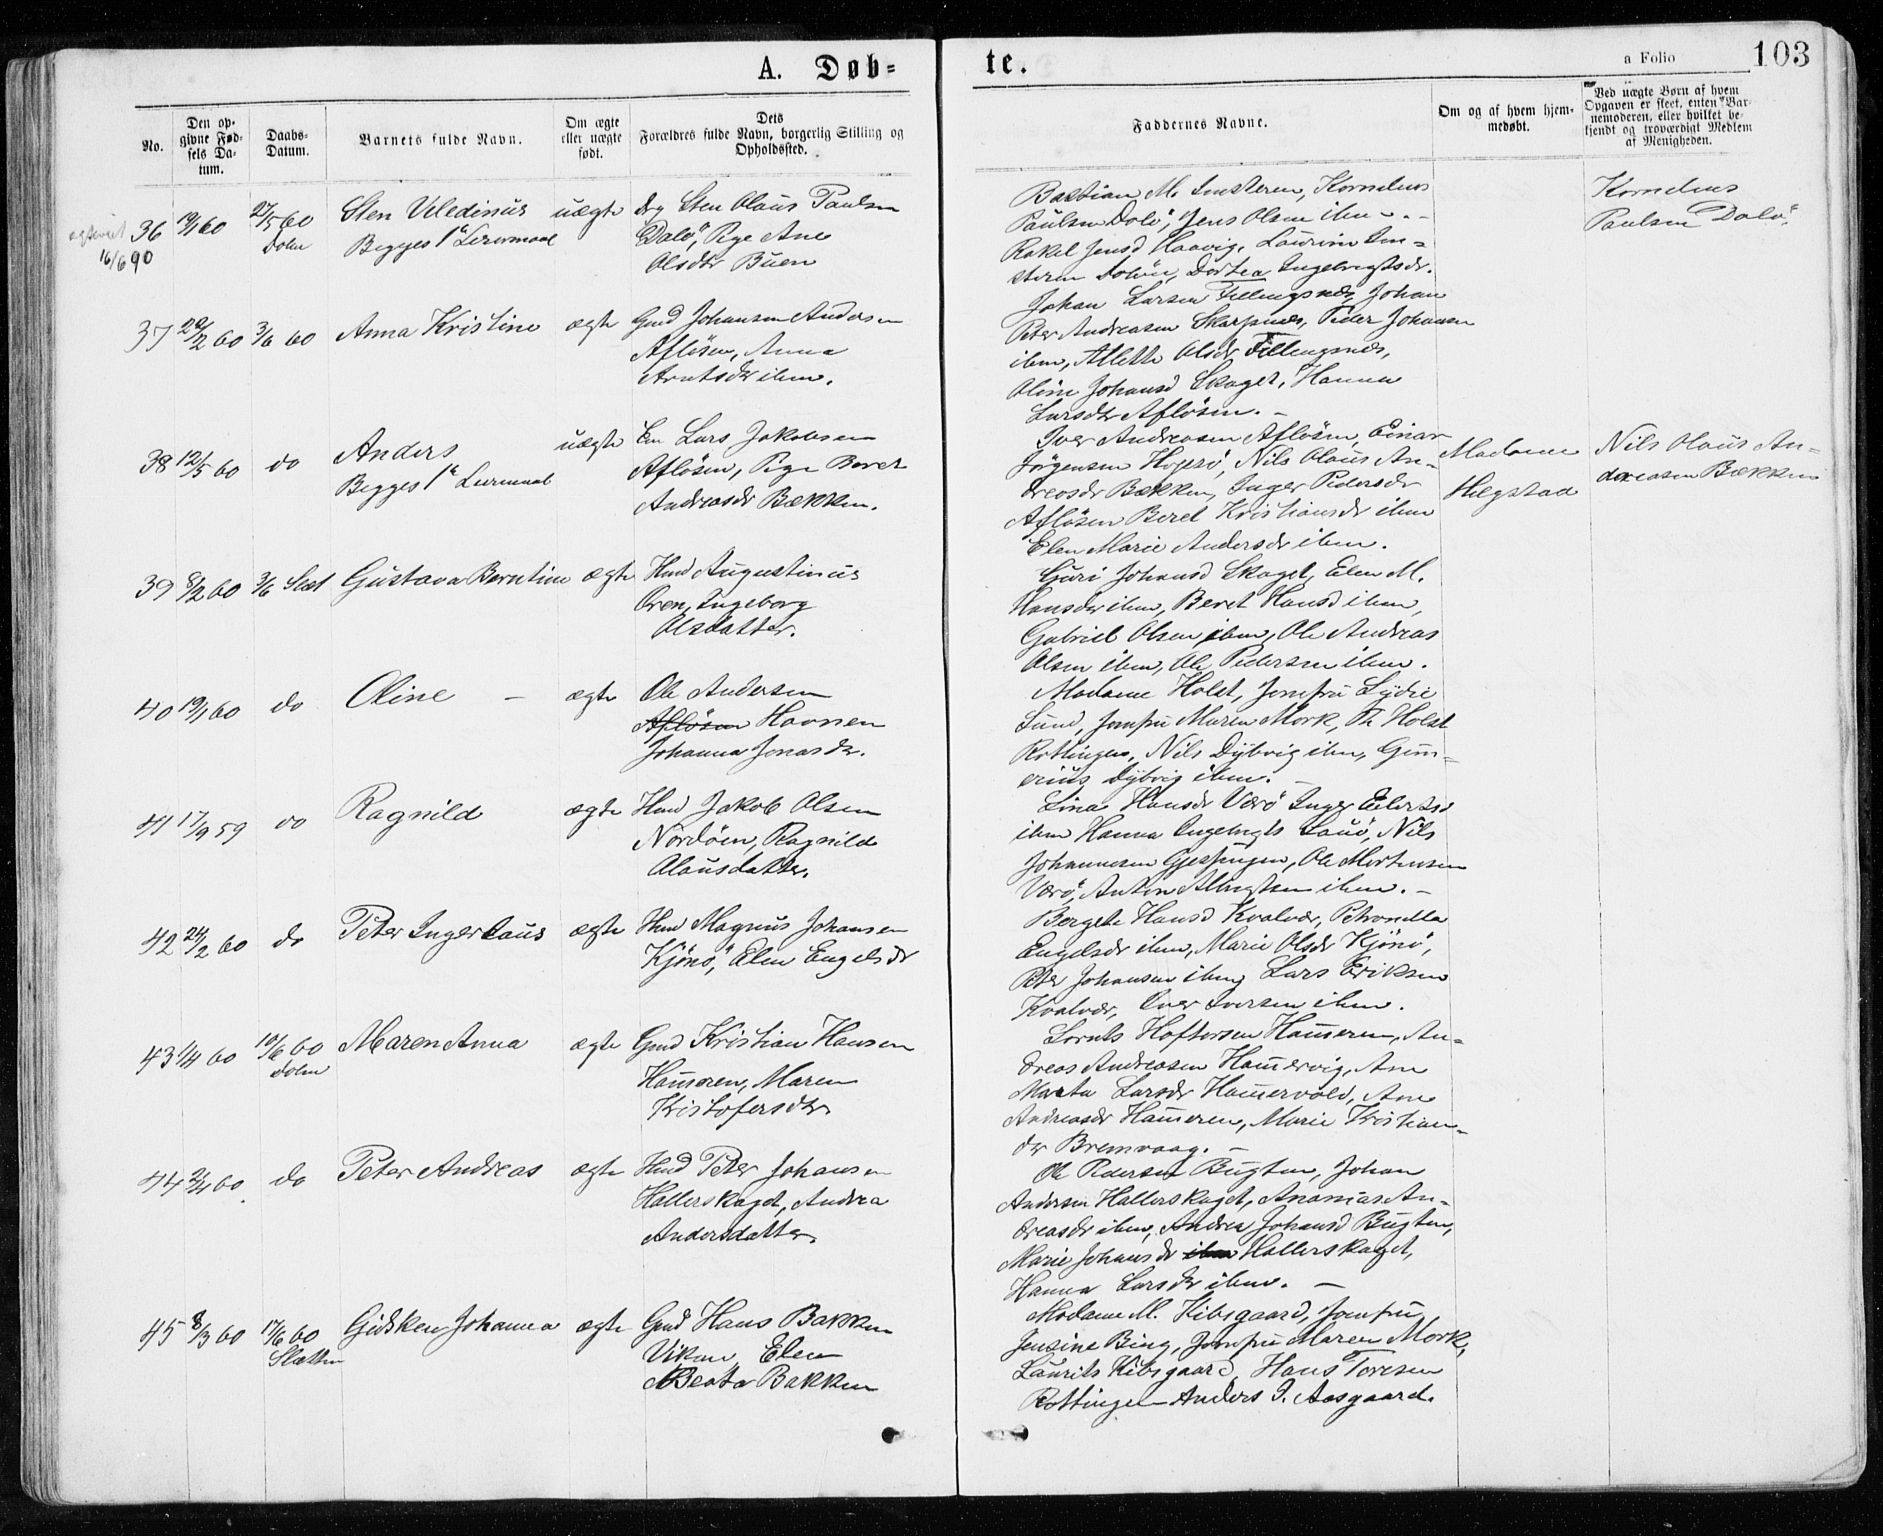 A. Døb-
te.
a Folio
103
No.
Den op-
givne Fød-
sels Da-
tum.
Daabs-
Datum.
Barnets fulde Navn.
Om ægte
eller uægte
født.
Dets
Forældres fulde Navn, borgerlig Stilling og
Opholdssted.
Faddernes Navne.
Om og af hvem hjem-
medøbt.
Ved uægte Børn af hvem
Opgaven er skeet, enten Bar-
nemoderen, eller hvilket be-
kjendt og troværdigt Medlem
af Menigheden.
36 19/1 60 27/5 60 Sten Veledinus uægte Drg Sten Olaus Paulsen
Dolm Begges 1e Leiermaal Dalø, Pige Ane
16/6 90 Olsdtr Buen
Bastian M. Kornelius
Paulsen Dolø, Jens Olsen ibm
Rakel Jensd Haavig, Laurine
Dolm, Dortea Ingebrigtsdr.
Kornelius
Paulsen Dalø.
37 29/2 60 3/6 60 Anna Kristine ægte Gmd Johansen Andersen
Afløsen, Anna
Arntsdr ibm.
Johan Larsen Fillingsnes, Johan
Peter Andreasen Skarpnes, Peder Johansen
ibm, Alette Olsdr Fillingsnes,
Oline Johansd Skaget, Hanna
Larsdtr Afløsen. -
38 12/5 60 do Anders uægte Em Lars Jakobsen
Begges 1e Leiermaal Afløsen, Pige Beret
Andreasdr Bækken.
Iver Andreasen Afløsen, Einar
Jørgensen Hogsø, Nils Olaus An-
dreasdr Bækken, Inger Pedersdr
Afløsen Beret Kristiansdr ibm
Elen Marie Andersdr ibm.
Madame
Helgstad
Nils Olaus An-
dreasen Bækken
39 8/2 60 3/6 Slæt Gustava Berntine ægte Hmd Augustinus
Oren, Ingeborg
Olsdatter.
Guri Johansd Skaget, Elen M.
Hansdr ibm, Beret Hansd ibm,
Gabriel Olsen ibm, Ole Andreas
Olsen ibm, Ole Pedersen ibm.
40 19/1 60 do Oline - ægte Ole Andersen
Afløsen Havnen
Johanna Jonasdr.
Madame Holst, Jomfru Lydie
Lund, Jomfru Maren Mork, Th Holst
Rottingen, Nils Dybvig ibm, Gun-
erius Dybvig ibm. -
41 17/9 59 do Ragnild ægte Hmd Jakob Olsen
Nordøen, Ragnild
Olausdatter.
Lina Hansdr Værø Inger Eilertsd
ibm Hanna Ingebrgts Sauø, Nils
Johannesen Gjessingen, Ole Mortensen
Værø, Anton Albrigtsen ibm. -
42 24/2 60 do Peter Ingerlaus ægte Hmd Magnus Johansen
Kjønø, Elen Engelsdr
Bergete Hansd Kvalvær, Petronella
Engelsdr ibm, Marie Olsdr Kjønø,
Peter Johansen ibm, Lars Eriksen
Kvalvær, Iver Iversen ibm.
43 1/4 60 10/6 60 Maren Anna ægte Gmd Kristian Hansen
Dolm Hameren, Maren
Kristofersdtr
Lornts Hoftorsen Hameren, An-
dreas Andreasen Hamervig, Ane
Marta Larsdr Hamervold, Ane
Andreasdr Hameren, Marie Kristian-
dr Bremvaag. -
44 2/4 60 do Peter Andreas ægte Hmd Peter Johansen
Hallerskaget, Andrea
Andersdatter.
Ole Pedersen Bugten, Johan
Andersen Hallerskaget, Ananias An-
dreasdr ibm, Andrea Johansd Bugten,
Marie Johansdr ibm Hallerskaget,
Hanna Larsdr ibm. -
45 8/3 60 17/6 60 Gidsken Johanna ægte Gmd Hans Bakken
Slætten Vikan, Elen
Beata Bakken
Madame M. Kibsgaard, Jomfru
Jensine Bing, Jomfru Maren Mork,
Laurits Kibsgaard, Hans Toresen
Rottingen Anders I. Aasgaard.